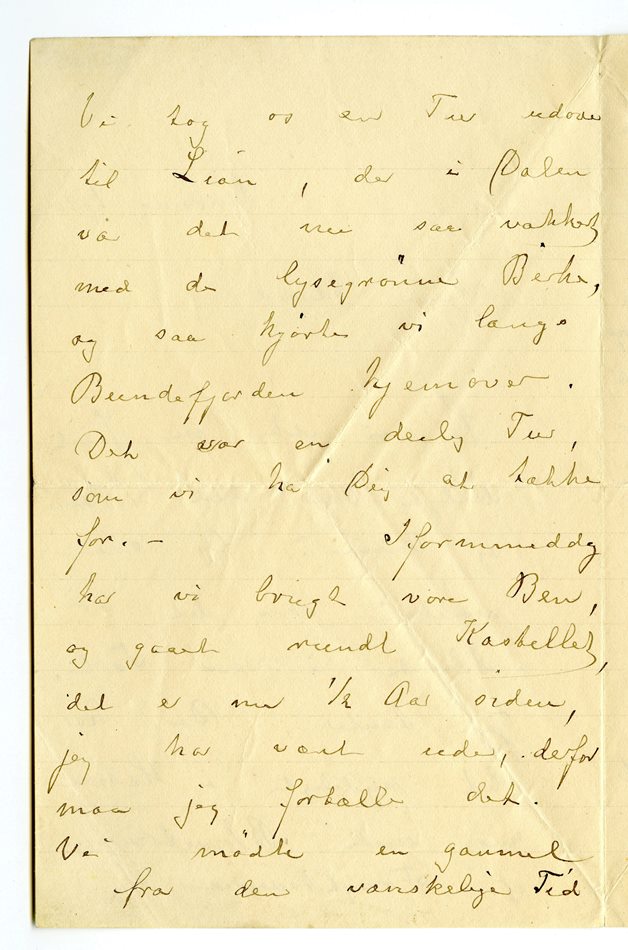 Vi tog os en Tur udover
til Liån, der i Dalen
var det nu saa vakkert
med de lysegrønne Birke,
og saa kjørte vi langs
Bundefjorden hjemover.
Det var en deilig Tur,
som vi ha Dig at takke
for. – Iformiddag
har vi brugt vore Ben,
og gaaet rundt Kastellet,
det er nu 1/2 Aar siden,
jeg har vært ude, derfor
maa jeg fortælle det.
Vi mødte en gammel
fra den vanskelige Tid